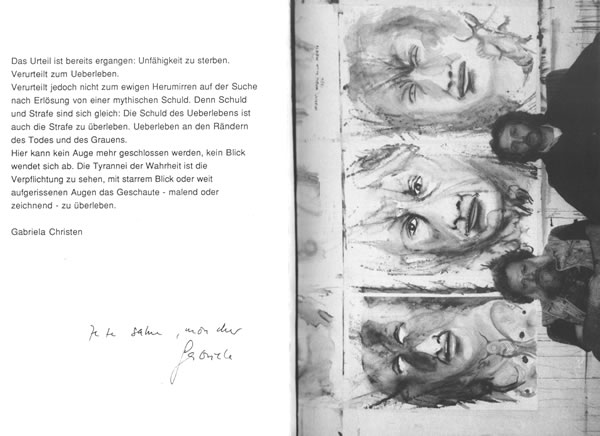 Das Urteil ist bereits ergangen: Unfähigkeit zu sterben.
Verurteilt zum Ueberleben.
Verurteilt jedoch nicht zum ewigen Herumirren auf der Suche
nach Erlösung von einer mythischen Schuld. Denn Schuld
und Strafe sind sich gleich: Die Schuld des Ueberlebens ist
auch die Strafe zu überleben. Ueberleben an den Rändern
des Todes und des Grauens.
Hier kann kein Auge mehr geschlossen werden, kein Blick
wendet sich ab. Die Tyrannei der Wahrheit ist die
Verpflichtung zu sehen, mit starrem Blick oder weit
aufgerissenen Augen das Geschaute - malend oder
zeichnend - zu überleben.
Gabriela Christen
Je te salue,
Gabriele